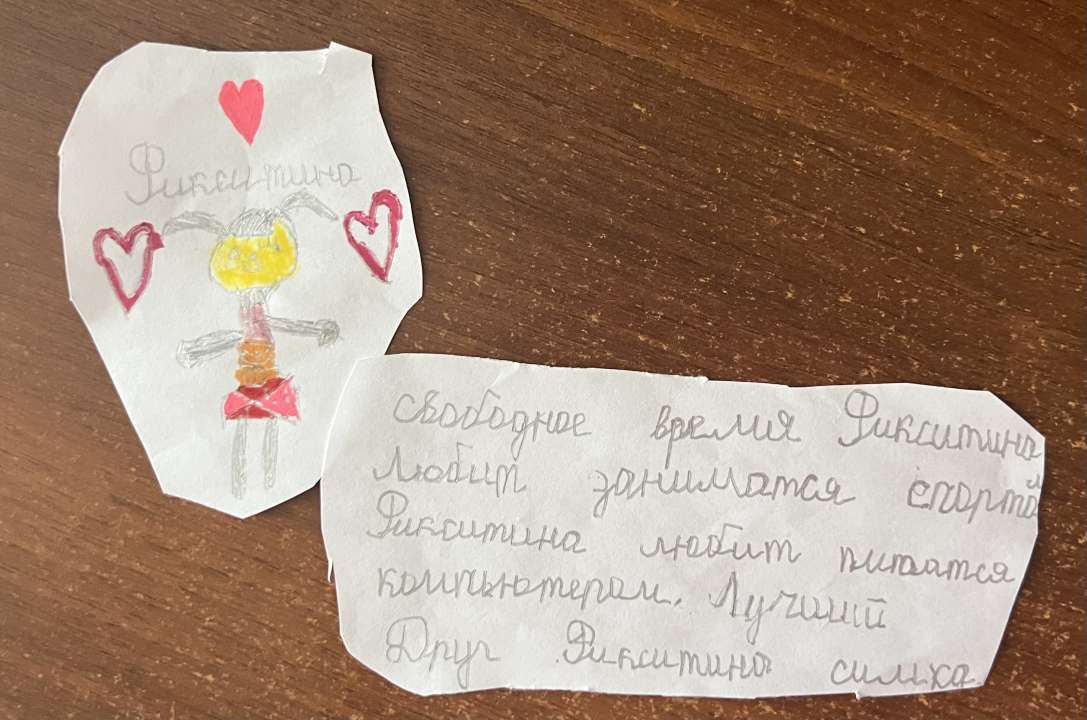 Фикситина
свободное время Фикситина
любит заниматся спорто
м
Фикситина любит питатся
компьютером. Лучший
Друг Фикситина симка